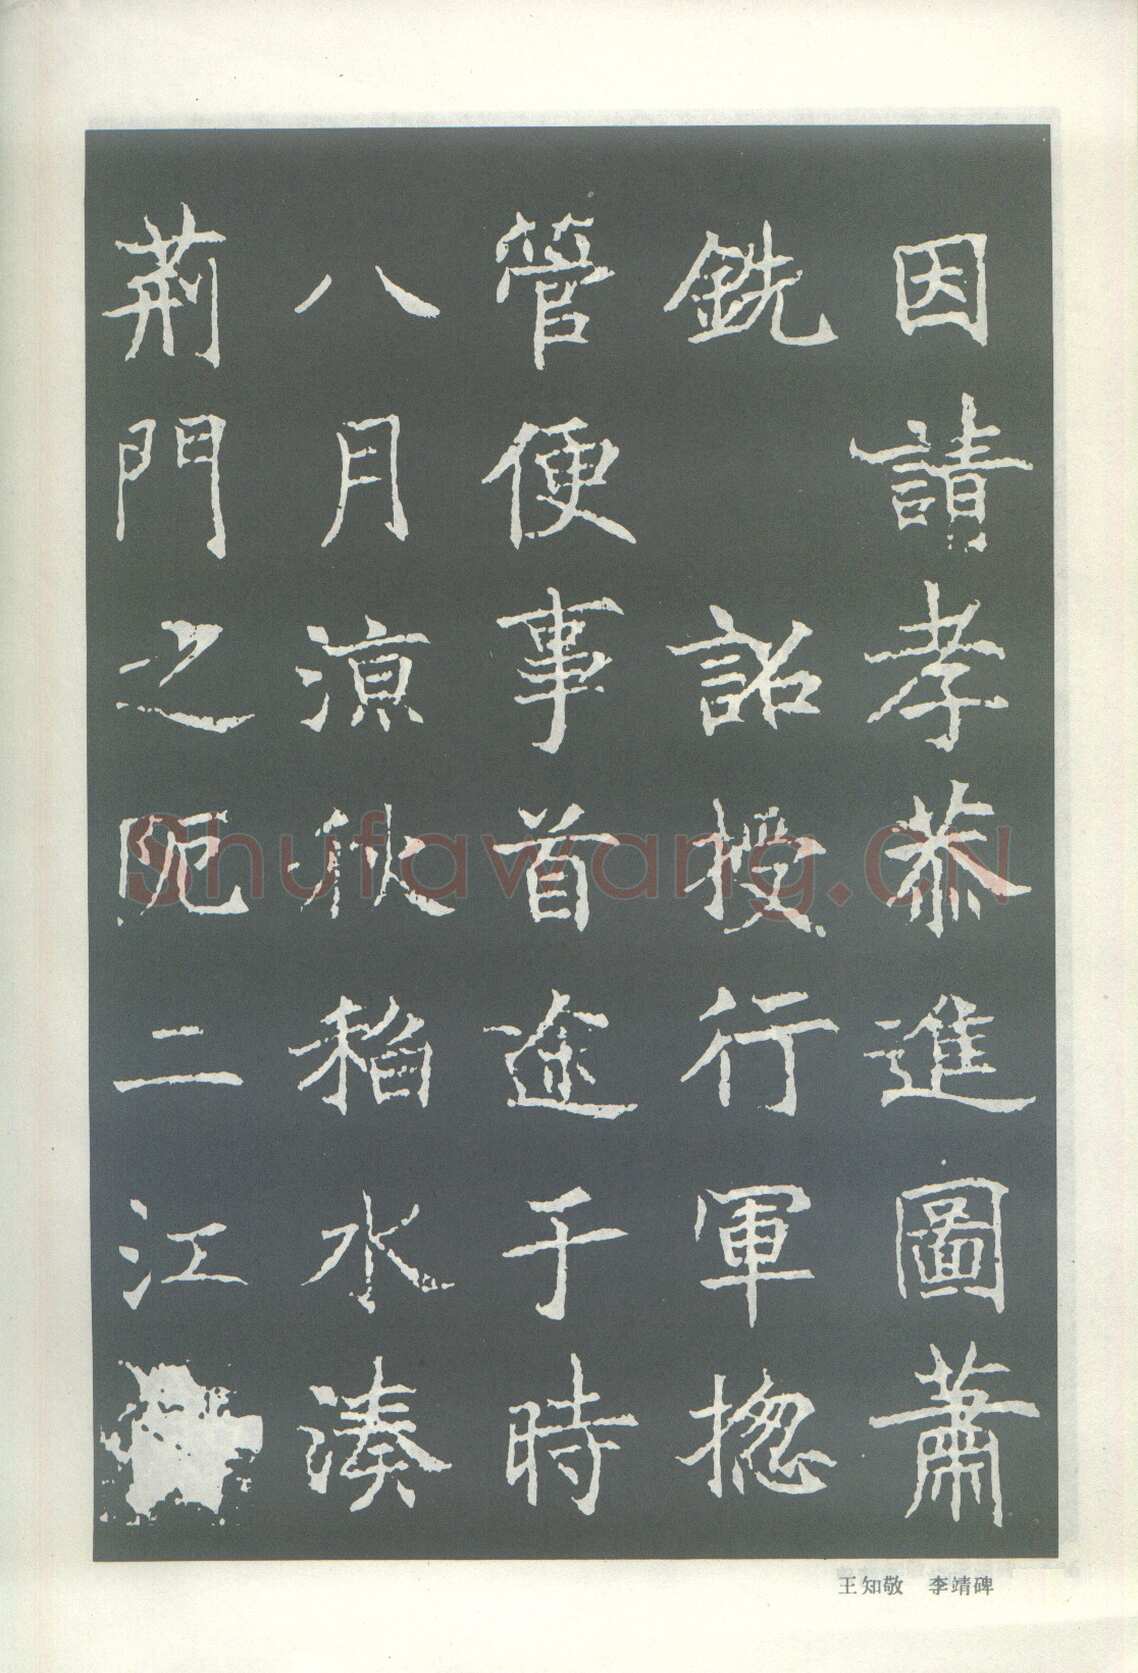 因請孝恭進圖蕭
銑 詔授行軍揔
管便事首途于時
八月涼秋稻水湊
荊門之阨二江
王知敬 李靖碑
Shufawang.CN